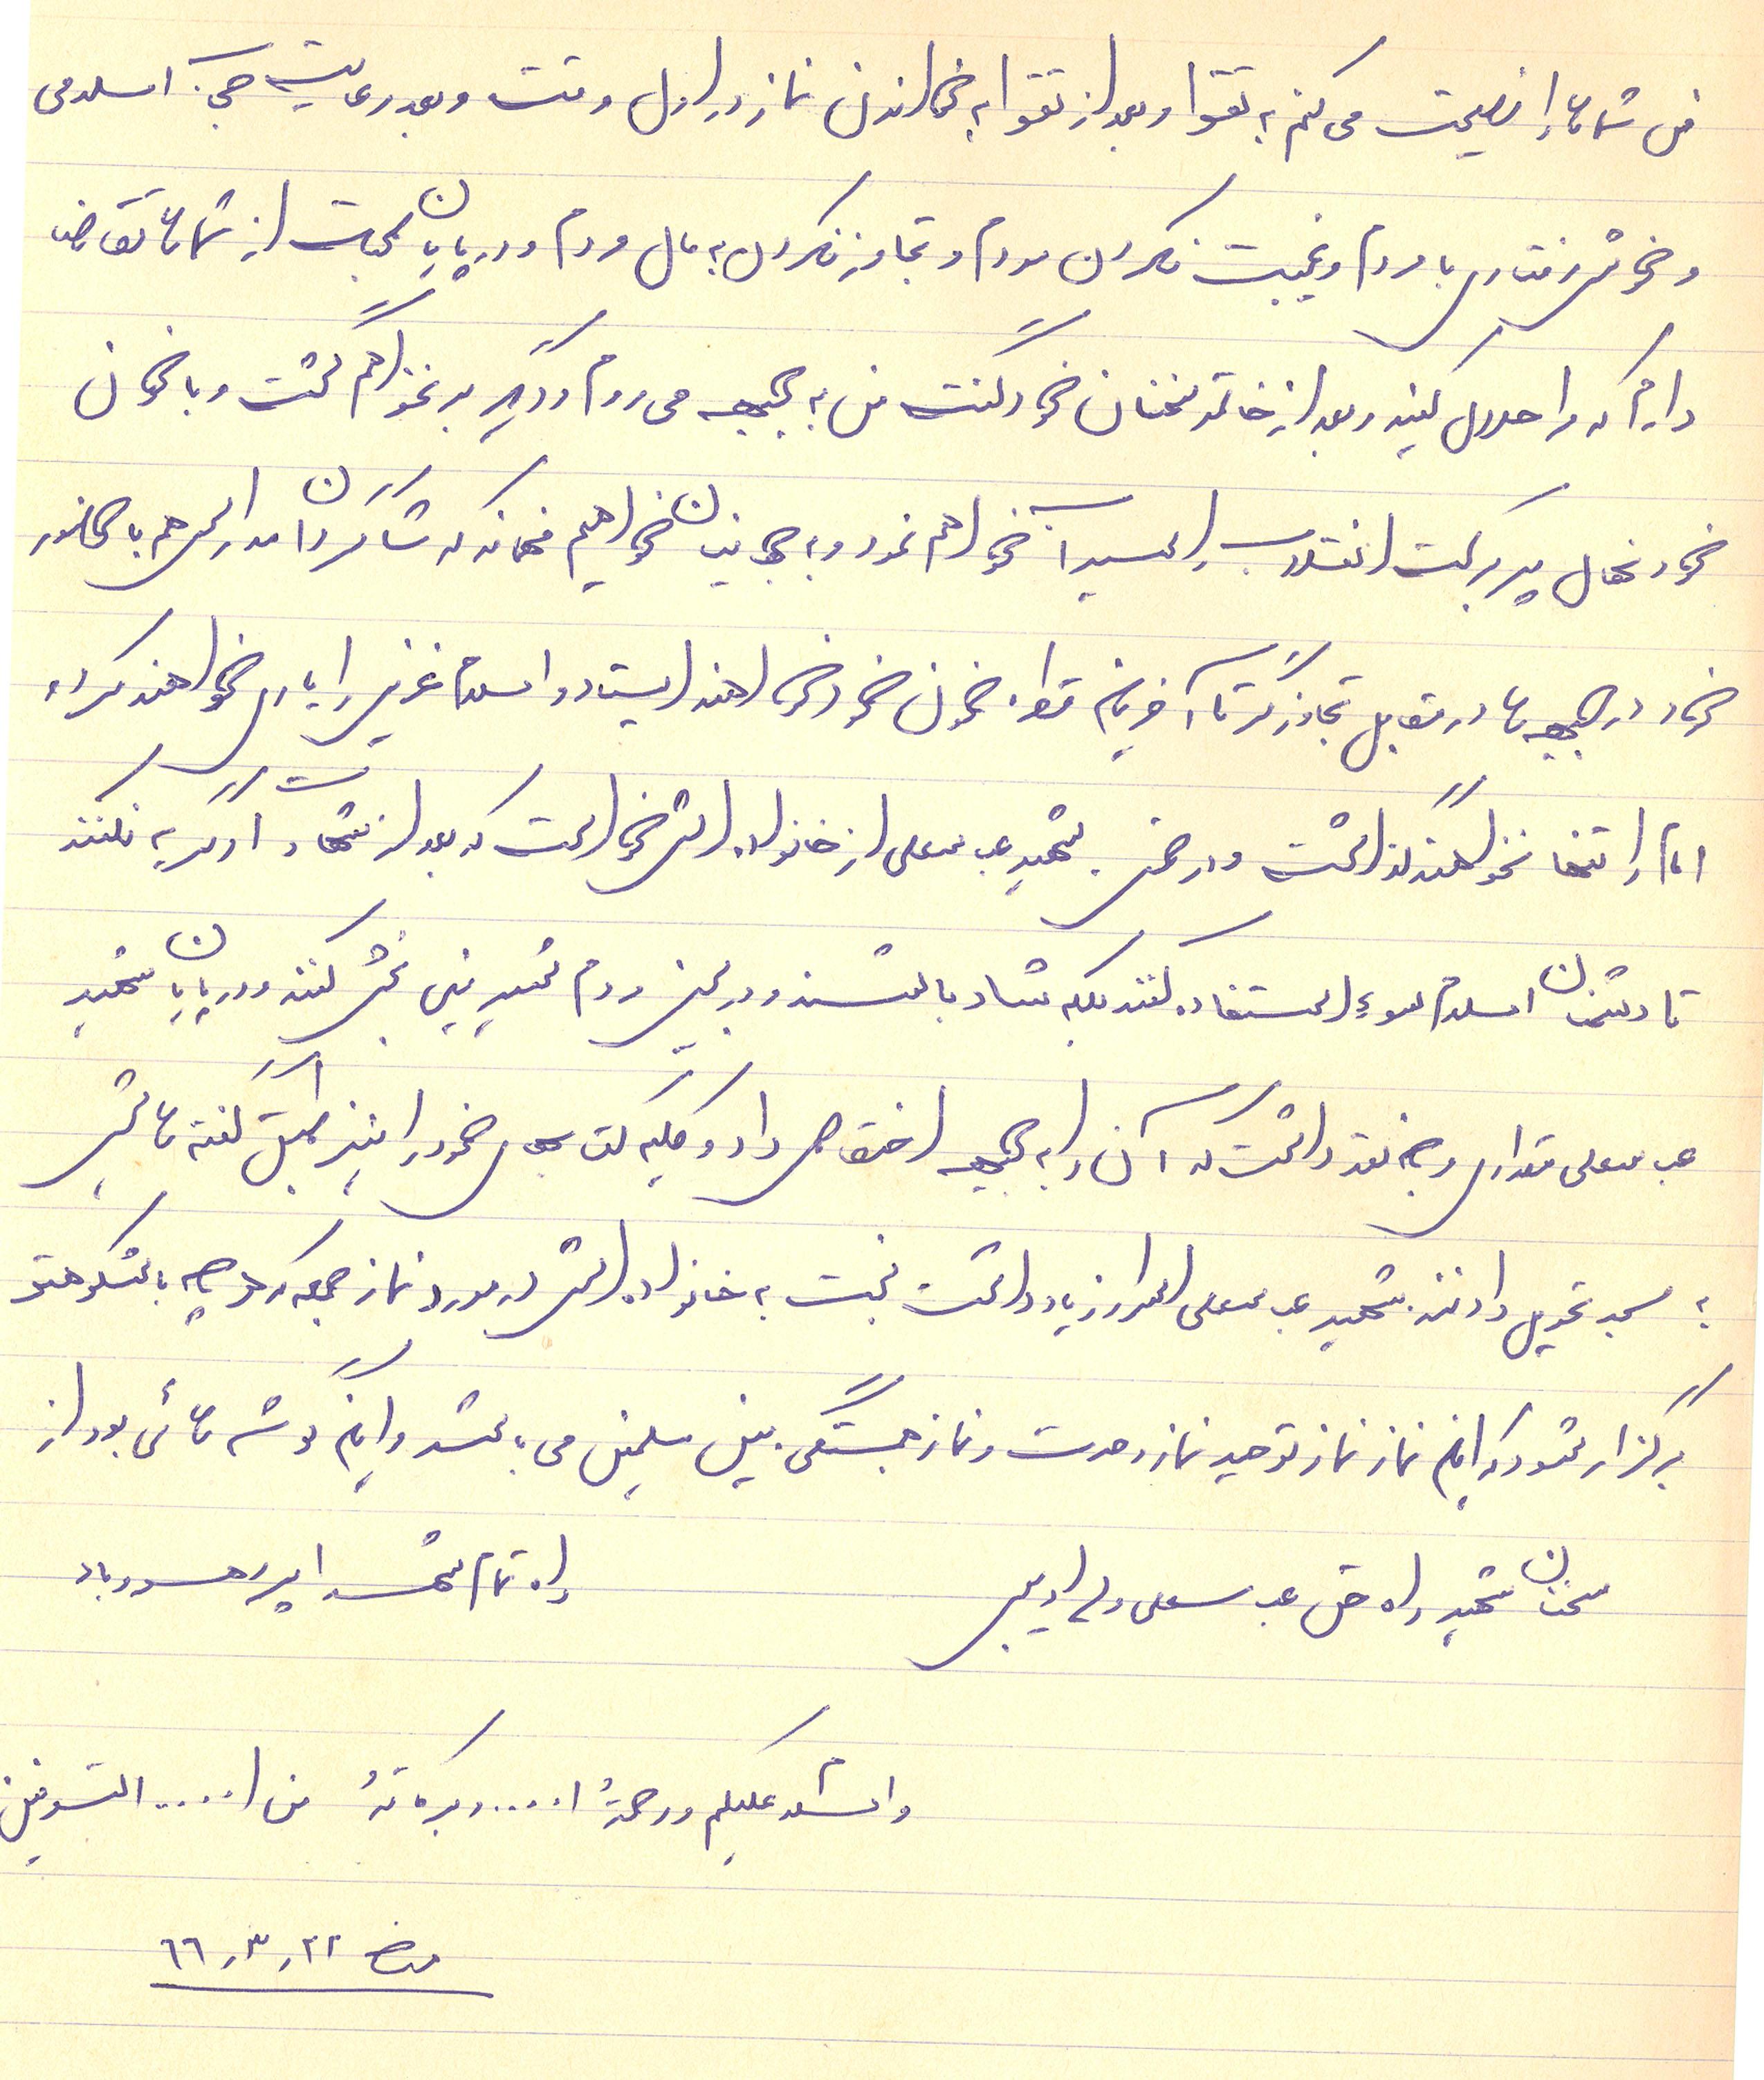 من شماها را نصیحت می کنم به تقوا و بعد از تقوا به خواندن نماز در اول وقت و بعد رعایت حجاب اسلامی
و خوش رفتاری با مردم و غیبت نکردن مردم و تجاوز نکردن به مال مردم و در پایان صحبت از شماها تقاضا
دارم که مرا حلال کنید و بعد از خاتمه سخنان خود گفت من به جبهه می روم و دیگر بر نخواهم گشت و با خون
خود نهال پر برکت انقلاب را آبیاری خواهم نمود و به جهانیان خواهیم فهماند که شاگردان مدارس هم با حضور
خود در جبهه ها در مقابل تجاوزگر تا آخرین قطره خون خود خواهند ایستاد و اسلام عزیز را یاری خواهند کرد و
امام را تنها نخواهند گذاشت و در ضمن شهید عباسعلی از خانواده اش خواست که بعد از شهادت او گریه نکنند
تا دشمنان اسلام سوء استفاده کنند بلکه شاد باشند و در بین مردم شیرینی پخش کنند و در پایان شهید
عباسعلی مقداری وجه نقد داشت که آن را به جبهه اختصاص داد و کلیه کتابهای خود را نیز طبق گفته هایش
به مسجد تحویل دادند. شهید عباسعلی اصرار زیاد داشت نسبت به خانواده اش در مورد نماز جمعه که هر چه باشکوهتر
برگزار شود که این نماز نماز توحید نماز وحدت و نماز همبستگی بین مسلمین می باشد و این گوشه هائی بود از
سخنان شهید راه حق عباسعلی
راه تمام شهدا پر رهرو باد
والسلام علیکم ورحمةُ ا.... وبرکاتهُ من ا.... التوفیق
۶۶,۳,۲۲